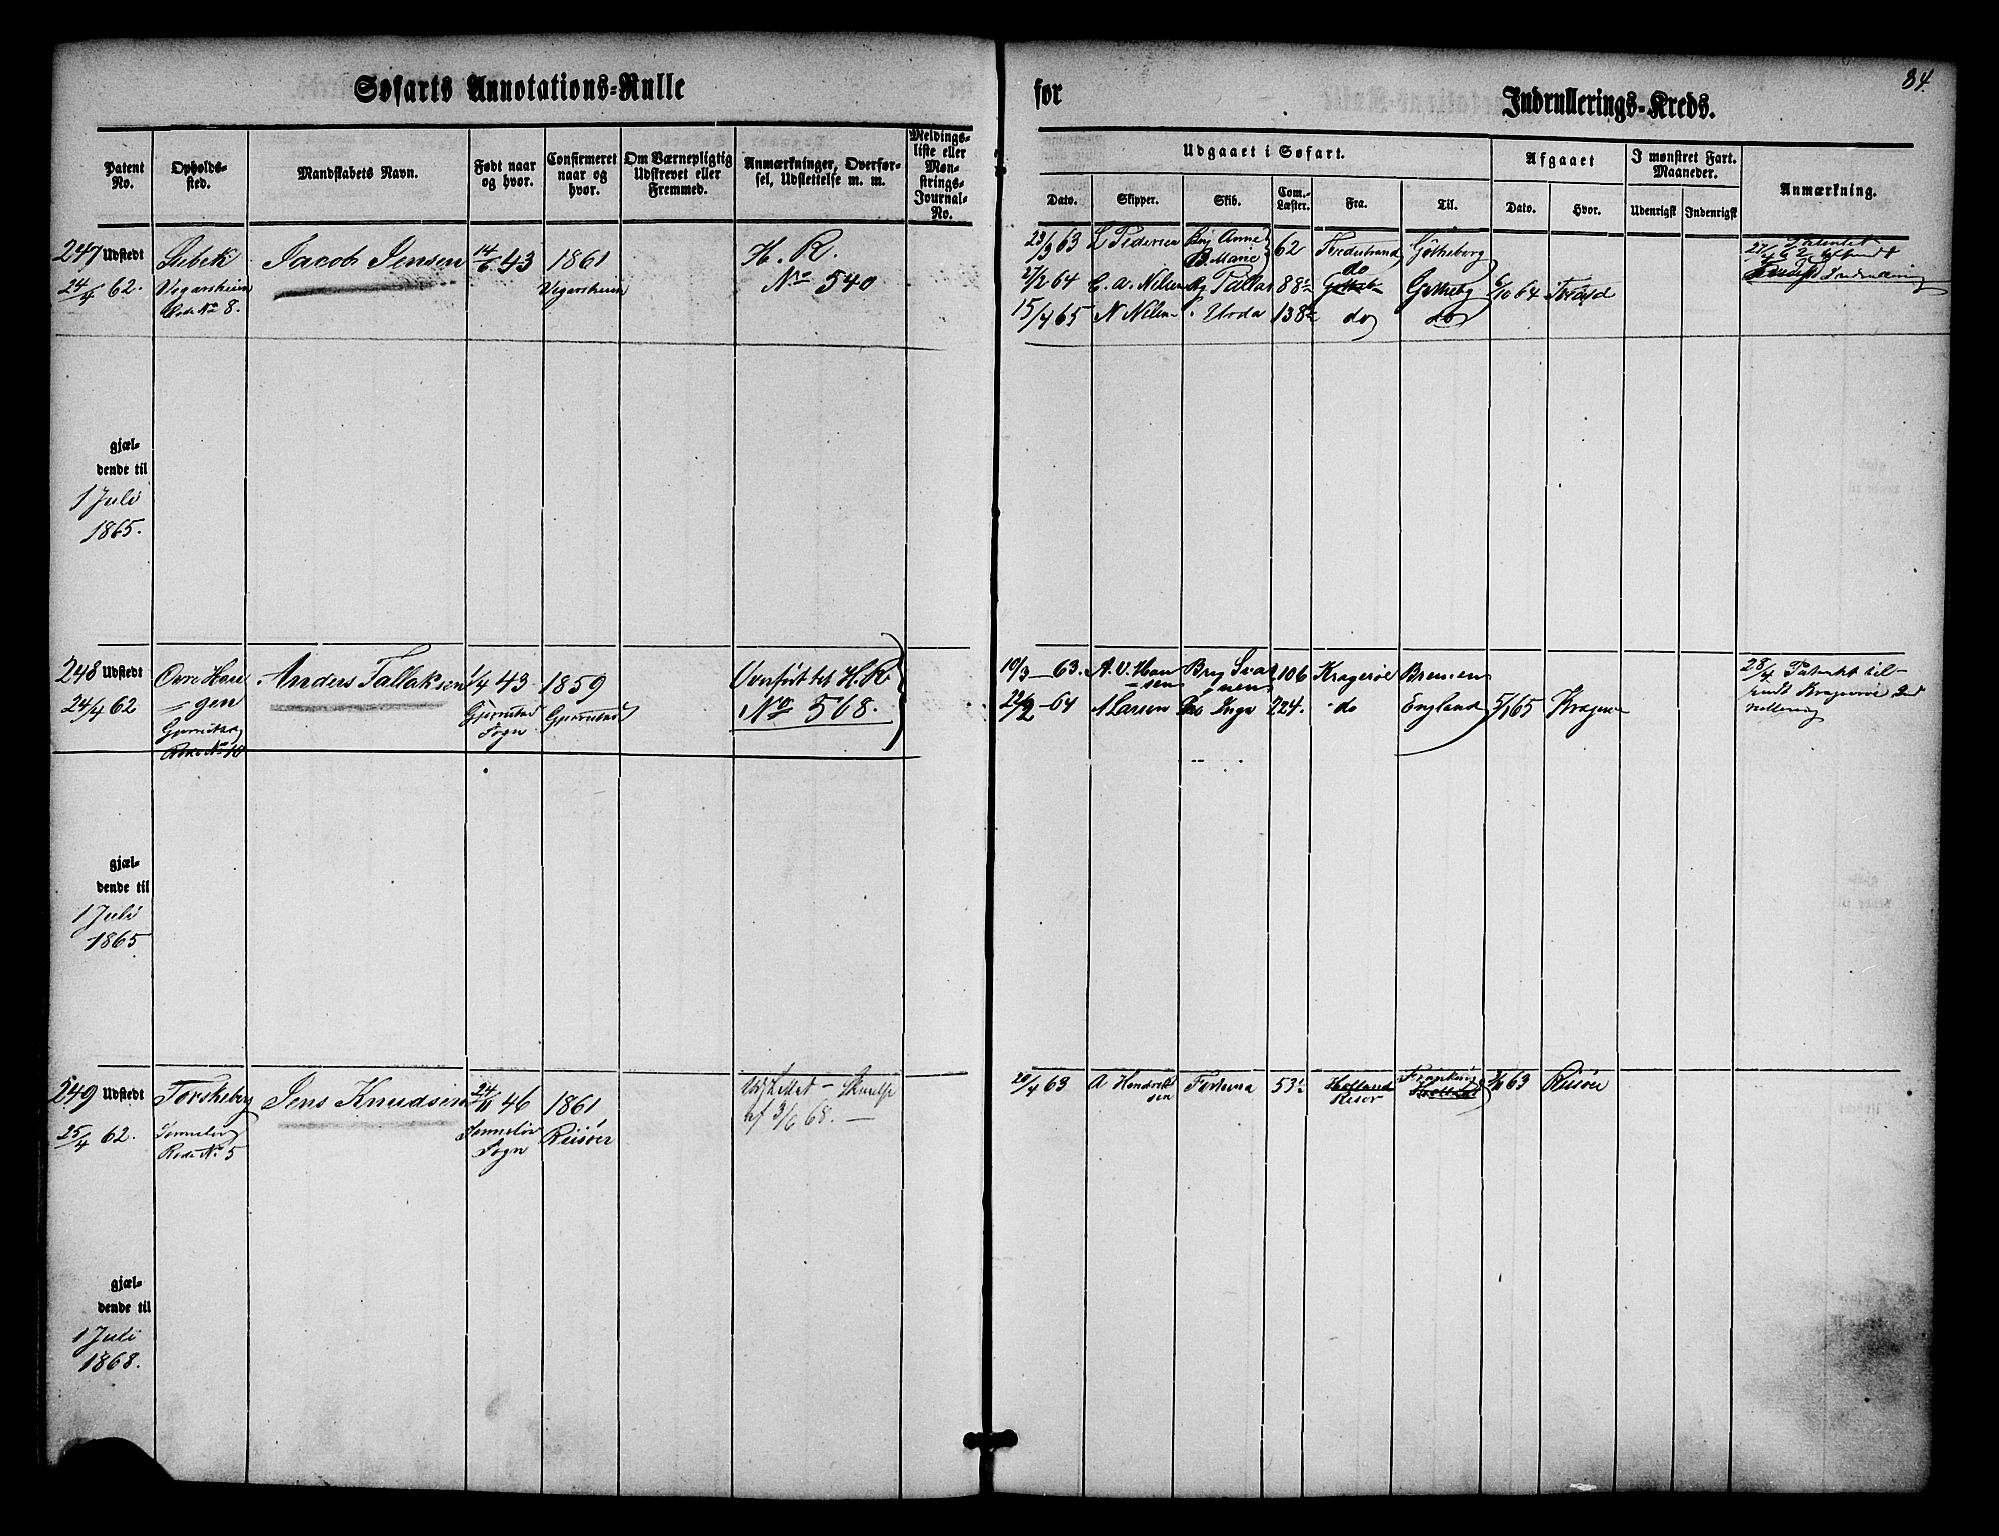 Søfarts Annotations-Rulle
for
Indrullerings-Kreds.
84.
Patent No.
Opholds-sted.
Mandskabets Navn.
Født naar og hvor.
Confirmeret naar og hvor.
Om Værnepligtig Udskrevet eller Fremmed.
Anmærkninger, Overførsel, Udslettelse m. m.
Meldings-liste eller Mønstrings-Journal-No.
Udgaaet i Søfart.
Afgaaet
I mønstret Fart. Maaneder.
Anmærkning.
Dato.
Skipper.
Skib.
Com.-Læster.
Fra.
Til.
Dato.
Hvor.
Udenrigsk
Indenrigsk
247 Udstedt
24/4 62.
Vegarsheien
Rode No 8.
Jacob Jensen
14/6 43
1861
Vegarsheien
H. R.
No 540
23/3 63 L Pedersen Brig Anne B. Marie 62 Götheborg
27/2 64 C. A. Nielsen Pallas 88 do Gotheb
15/4 65 N Nilsen Urda 138 do do
gjæl-
dende til
1 Juli
1865.
248 Udstedt
24/4 62
Øvre Hau
gen
Gjerrestad
Rode No 10
Anders Tallaksen
1/4 43
Gjerrestad
Sogn
1859
Gjerrestad
Overført til H. R.
No 568.
19/3 63. A. V. Han
sen Brig 106 Kragerøe Bremen
22/2 64 Larsen Inga 224. do England 5/1 65 Krager
28/4 Patentet til-
sendt Kragerøe Ind
rullering
gjæl-
dende til
1 Juli
1865
249 Udstedt
25/4 62.
Torskeberg
Rode No 5
Jens Knudsen
24/11 46
Sogn
1861
Riisøer
Udslettet
af 3/6 68.
20/4 63 A Hendrik
sen Fortuna 53 Holland
Risør 63 Riisøer
gjæl-
dende til
1 Juli
1868.